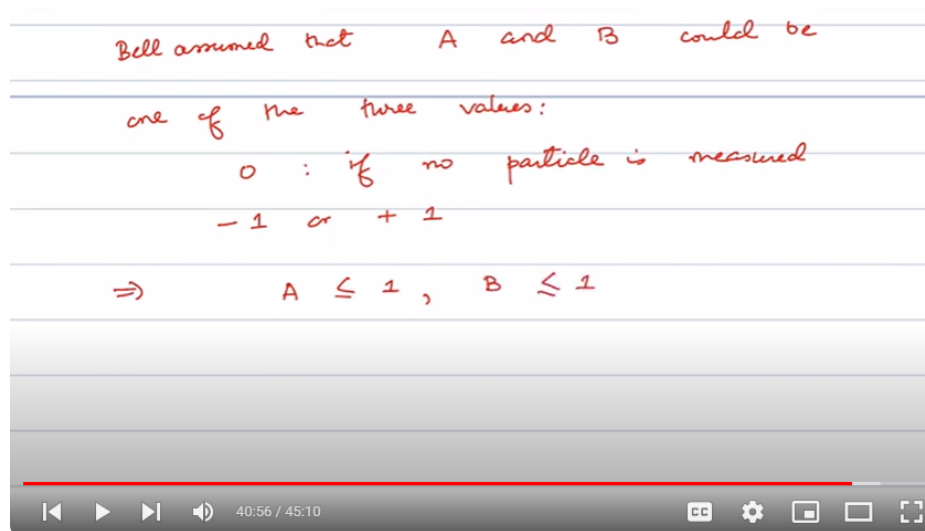 Bell assumed that A and B could be
one of the three values:
0 : if no particle is measured
- 1 or + 1
⇒ A ≤ 1, B ≤ 1
40:56 / 45:10
CC